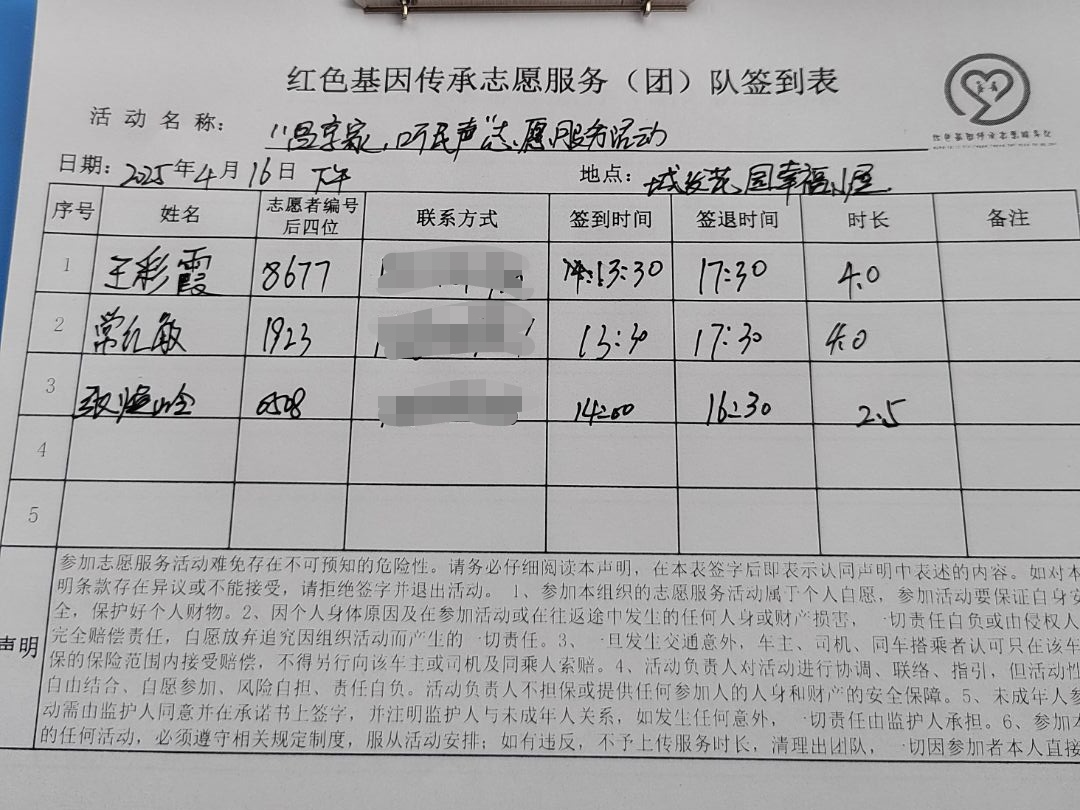 红色基因传承志愿服务(团)队签到表
活动名称: "冯京家,听民声"志愿服务活动
日期: 2025年4月16日 下午 地点: 城发花园幸福小屋
序号 姓名 志愿者编号后四位 联系方式 签到时间 签退时间 时长 备注
1 王彩霞 8677 13:30 17:30 4.0
2 常红敏 1923 13:30 17:30 4.0
3 6508 14:00 16:30 2.5
4
5
声明
参加志愿服务活动难免存在不可预知的危险性。请务必仔细阅读本声明,在本表签字后即表示认同声明中表述的内容。如对本
明条款存在异议或不能接受,请拒绝签字并退出活动。 1、参加本组织的志愿服务活动属于个人自愿,参加活动要保证自身安
全,保护好个人财物。2、因个人身体原因及在参加活动或在往返途中发生的任何人身或财产损害,一切责任自负或由侵权人
完全赔偿责任,自愿放弃追究因组织活动而产生的一切责任。3、一旦发生交通意外,车主、司机、同车搭乘者认可只在该车
保的保险范围内接受赔偿,不得另行向该车主或司机及同乘人索赔。4、活动负责人对活动进行协调、联络、指引,但活动性
自由结合、自愿参加、风险自担、责任自负。活动负责人不担保或提供任何参加人的人身和财产的安全保障。5、未成年人参
动需由监护人同意并在承诺书上签字,并注明监护人与未成年人关系,如发生任何意外,一切责任由监护人承担。6、参加本
的任何活动,必须遵守相关规定制度,服从活动安排;如有违反,不予上传服务时长,清理出团队,一切因参加者本人直接